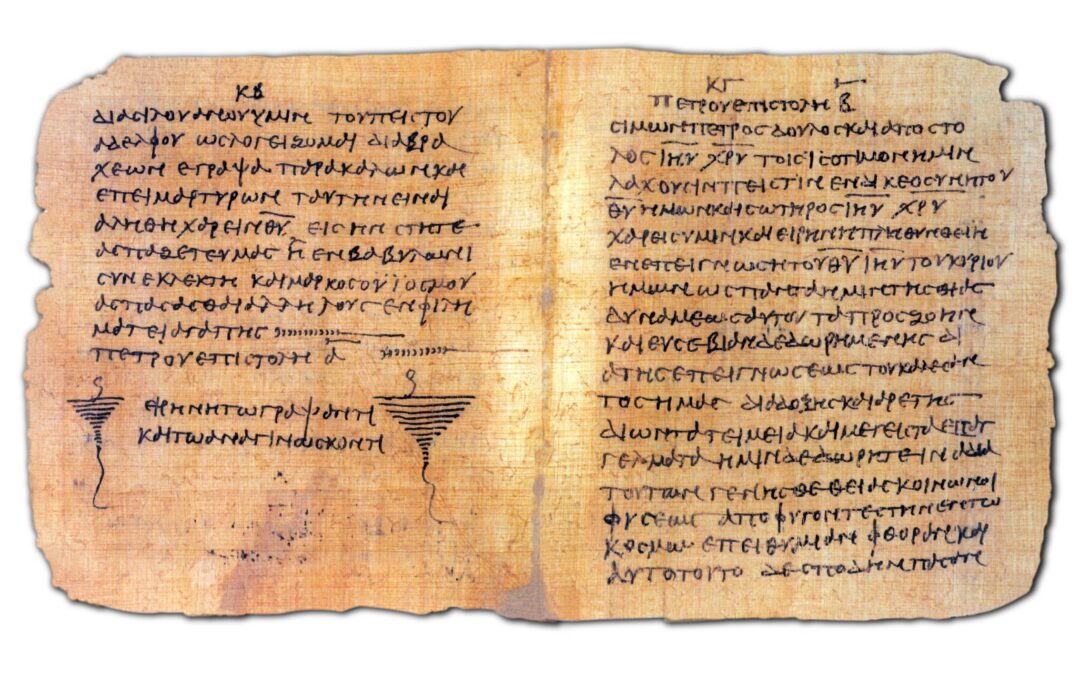 ΚΒ
διασιλουανουυμιν τουπειστου
αδελφου ωσλογειζομαι διαβρα
χεων εγραψα παρακαλωνκαι
επειμαρτυρων ταυτηνειναι
αληθη χαρειν θ̅υ̅ εισ ην στητε
ασπαζετευμας η ενβαβυλωνι
συνεκλεκτη καιμαρκοσουϊοσμου
ασπασασθαιαλληλους ενφιλη
ματειαγαπης
πετρουεπιστολη α̅
ειρηνητωγραψαντι
καιτωαναγινωσκοντι
ΚΓ
πετρουεπιστολη β̅
σιμωνπετρος δουλοσκαιαποστο
λος ι̅η̅υ̅ χ̅ρ̅υ̅ τοισ ισοτιμονημιν
λαχουσινπειστιν ενδικεοσυνητου
θ̅υ̅ ημωνκαισωτηρος ι̅η̅υ̅ χ̅ρ̅υ̅
χαρεισυμινκαιειρηνηπληθυνθειη
ενεπειγνωσητουθ̅υ̅ ι̅η̅υ̅τουκυριου
ημων ωσπανταημιντησθιας
δυναμεωσαυτου ταπροσζωην
καιευσεβιανδεδωρημενης δι
ατησεπειγνωσεωστουκαλεσαν
τοσημας διαδοξησκαιαρετης
διωντατειμειακαιμεγεισταεπαγ
γελματα ημινδεδωρητειναδια
τουτων γενησθεθειασκοινωνοι
φυσεως αποφυγοντεστηνεντω
κοσμω επειθυμιαν φθοραςκαι
αυτοτουτο δεσπουδηνπασαν